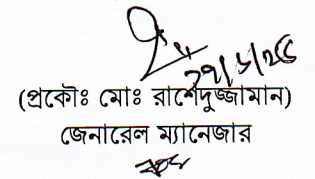 (প্রকৌঃ মোঃ রাশেদুজ্জামান)
জেনারেল ম্যানেজার